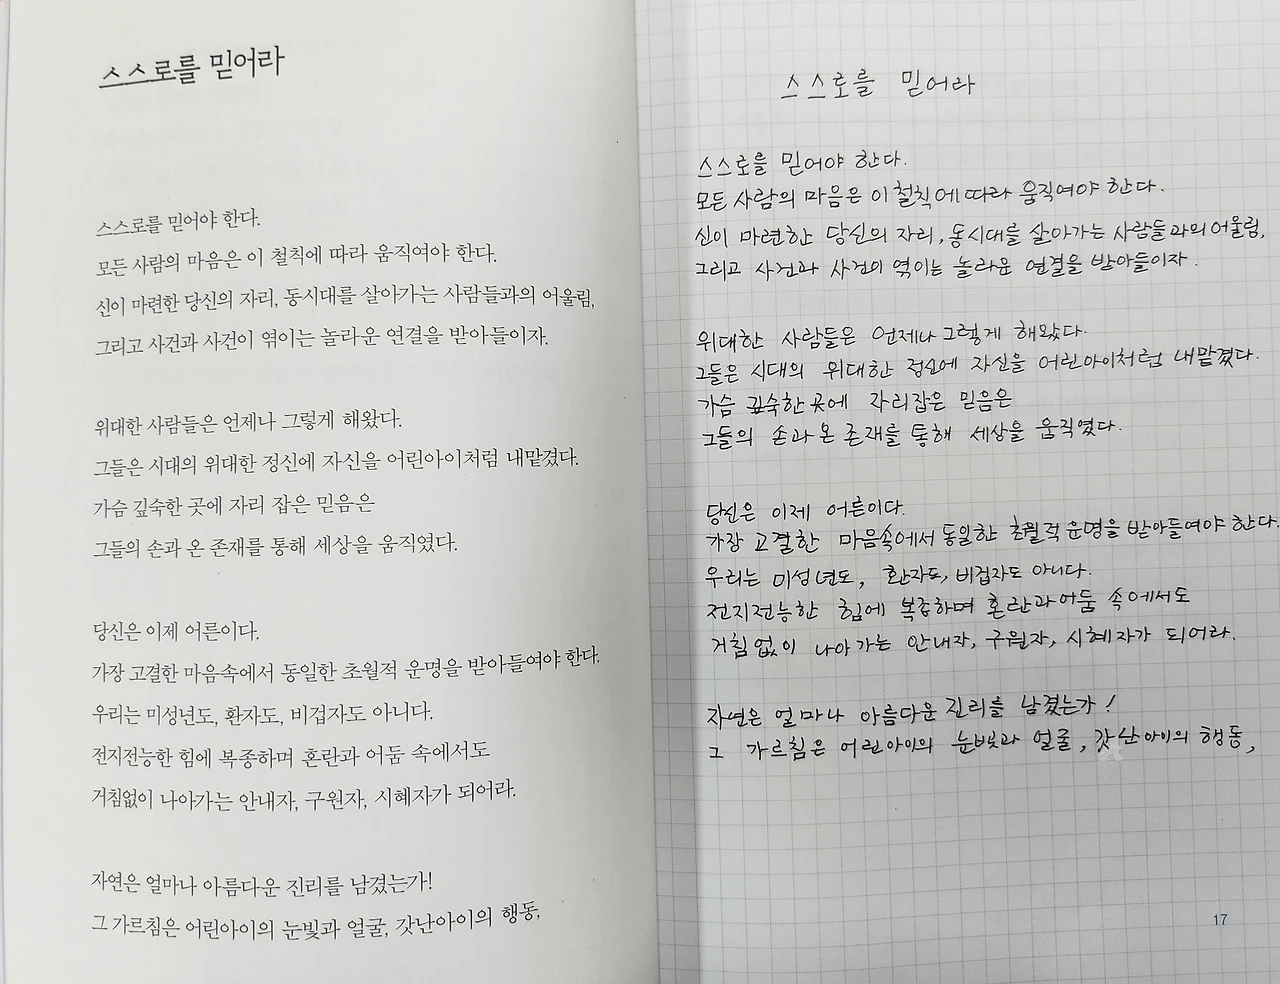 스스로를 믿어라
스스로를 믿어야 한다.
모든 사람의 마음은 이 철칙에 따라 움직여야 한다.
신이 마련한 당신의 자리, 동시대를 살아가는 사람들과의 어울림,
그리고 사건과 사건이 엮이는 놀라운 연결을 받아들이자.
위대한 사람들은 언제나 그렇게 해왔다.
그들은 시대의 위대한 정신에 자신을 어린아이처럼 내맡겼다.
가슴 깊숙한 곳에 자리 잡은 믿음은
그들의 손과 온 존재를 통해 세상을 움직였다.
당신은 이제 어른이다.
가장 고결한 마음속에서 동일한 초월적 운명을 받아들여야 한다.
우리는 미성년도, 환자도, 비겁자도 아니다.
전지전능한 힘에 복종하며 혼란과 어둠 속에서도
거침없이 나아가는 안내자, 구원자, 시혜자가 되어라.
자연은 얼마나 아름다운 진리를 남겼는가!
그 가르침은 어린아이의 눈빛과 얼굴, 갓난아이의 행동,
스스로를 믿어라
스스로를 믿어야 한다.
모든 사람의 마음은 이 철칙에 따라 움직여야 한다.
신이 마련한 당신의 자리, 동시대를 살아가는 사람들과의 어울림,
그리고 사건과 사건이 엮이는 놀라운 연결을 받아들이자.
위대한 사람들은 언제나 그렇게 해왔다.
그들은 시대의 위대한 정신에 자신을 어린아이처럼 내맡겼다.
가슴 깊숙한 곳에 자리잡은 믿음은
그들의 손과 온 존재를 통해 세상을 움직였다.
당신은 이제 어른이다.
가장 고결한 마음속에서 동일한 초월적 운명을 받아들여야 한다.
우리는 미성년도, 환자도, 비겁자도 아니다.
전지전능한 힘에 복종하며 혼란과 어둠 속에서도
거침없이 나아가는 안내자, 구원자, 시혜자가 되어라.
자연은 얼마나 아름다운 진리를 남겼는가!
그 가르침은 어린아이의 눈빛과 얼굴, 갓난아이의 행동,
17